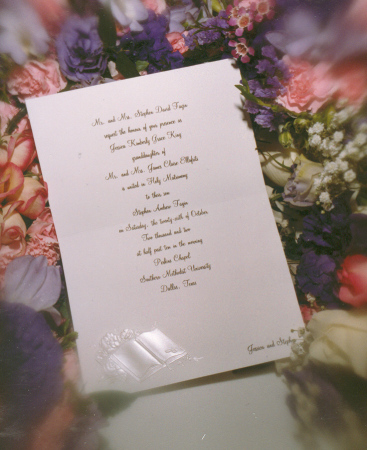 Mr. and Mrs. Stephen David Fagin
request the honour of your presence as
Jessica Kimberly Grace King
granddaughter of
Mr. and Mrs. James Clever
is united in Holy Matrimony
to their son
Stephen Andrew Fagin
on Saturday, the twenty sixth of October
Two thousand and two
at half past ten in the morning
Perkins Chapel
Southern Methodist University
Dallas, Texas
Jessica and Stephen